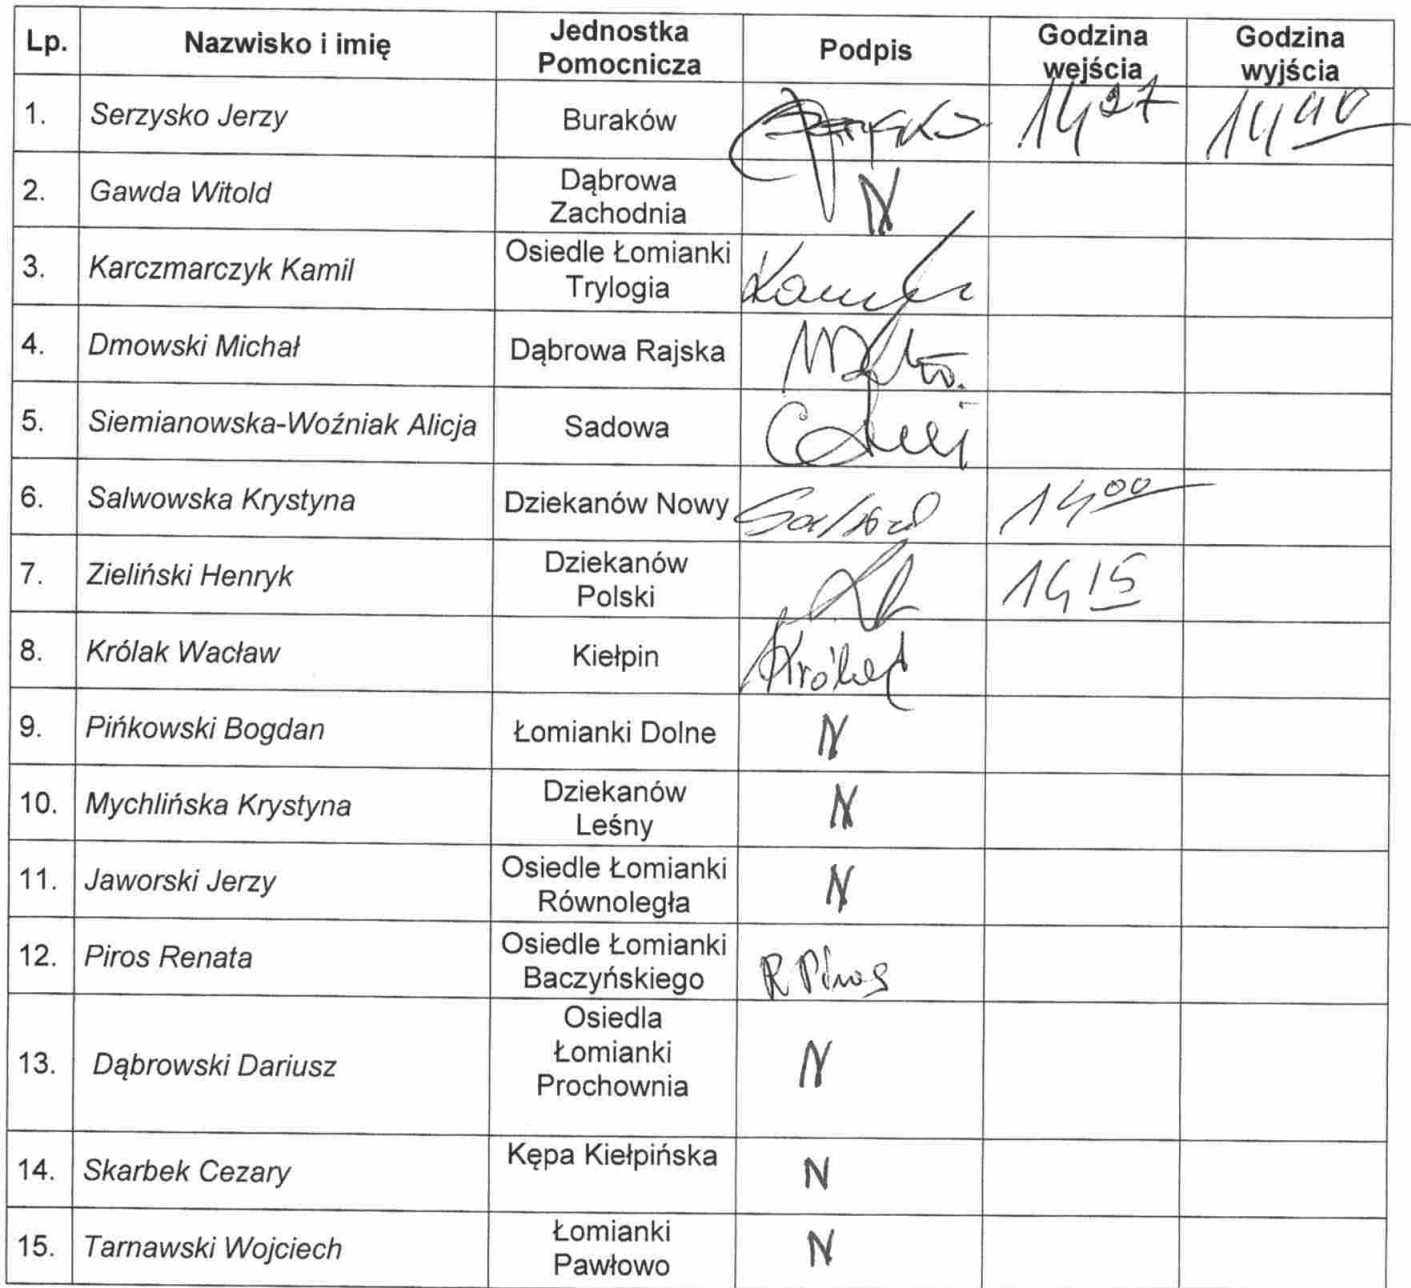 Lp. Nazwisko i imię Jednostka Pomocnicza Podpis Godzina wejścia Godzina wyjścia
1. Serzysko Jerzy Buraków 14 27 14 40
2. Gawda Witold Dąbrowa Zachodnia N
3. Karczmarczyk Kamil Osiedle Łomianki Trylogia
4. Dmowski Michał Dąbrowa Rajska
5. Siemianowska-Woźniak Alicja Sadowa
6. Salwowska Krystyna Dziekanów Nowy 14 00
7. Zieliński Henryk Dziekanów Polski 14 15
8. Królak Wacław Kiełpin
9. Pińkowski Bogdan Łomianki Dolne N
10. Mychlińska Krystyna Dziekanów Leśny N
11. Jaworski Jerzy Osiedle Łomianki Równoległa N
12. Piros Renata Osiedle Łomianki Baczyńskiego R Piros
13. Dąbrowski Dariusz Osiedla Łomianki Prochownia N
14. Skarbek Cezary Kępa Kiełpińska N
15. Tarnawski Wojciech Łomianki Pawłowo N